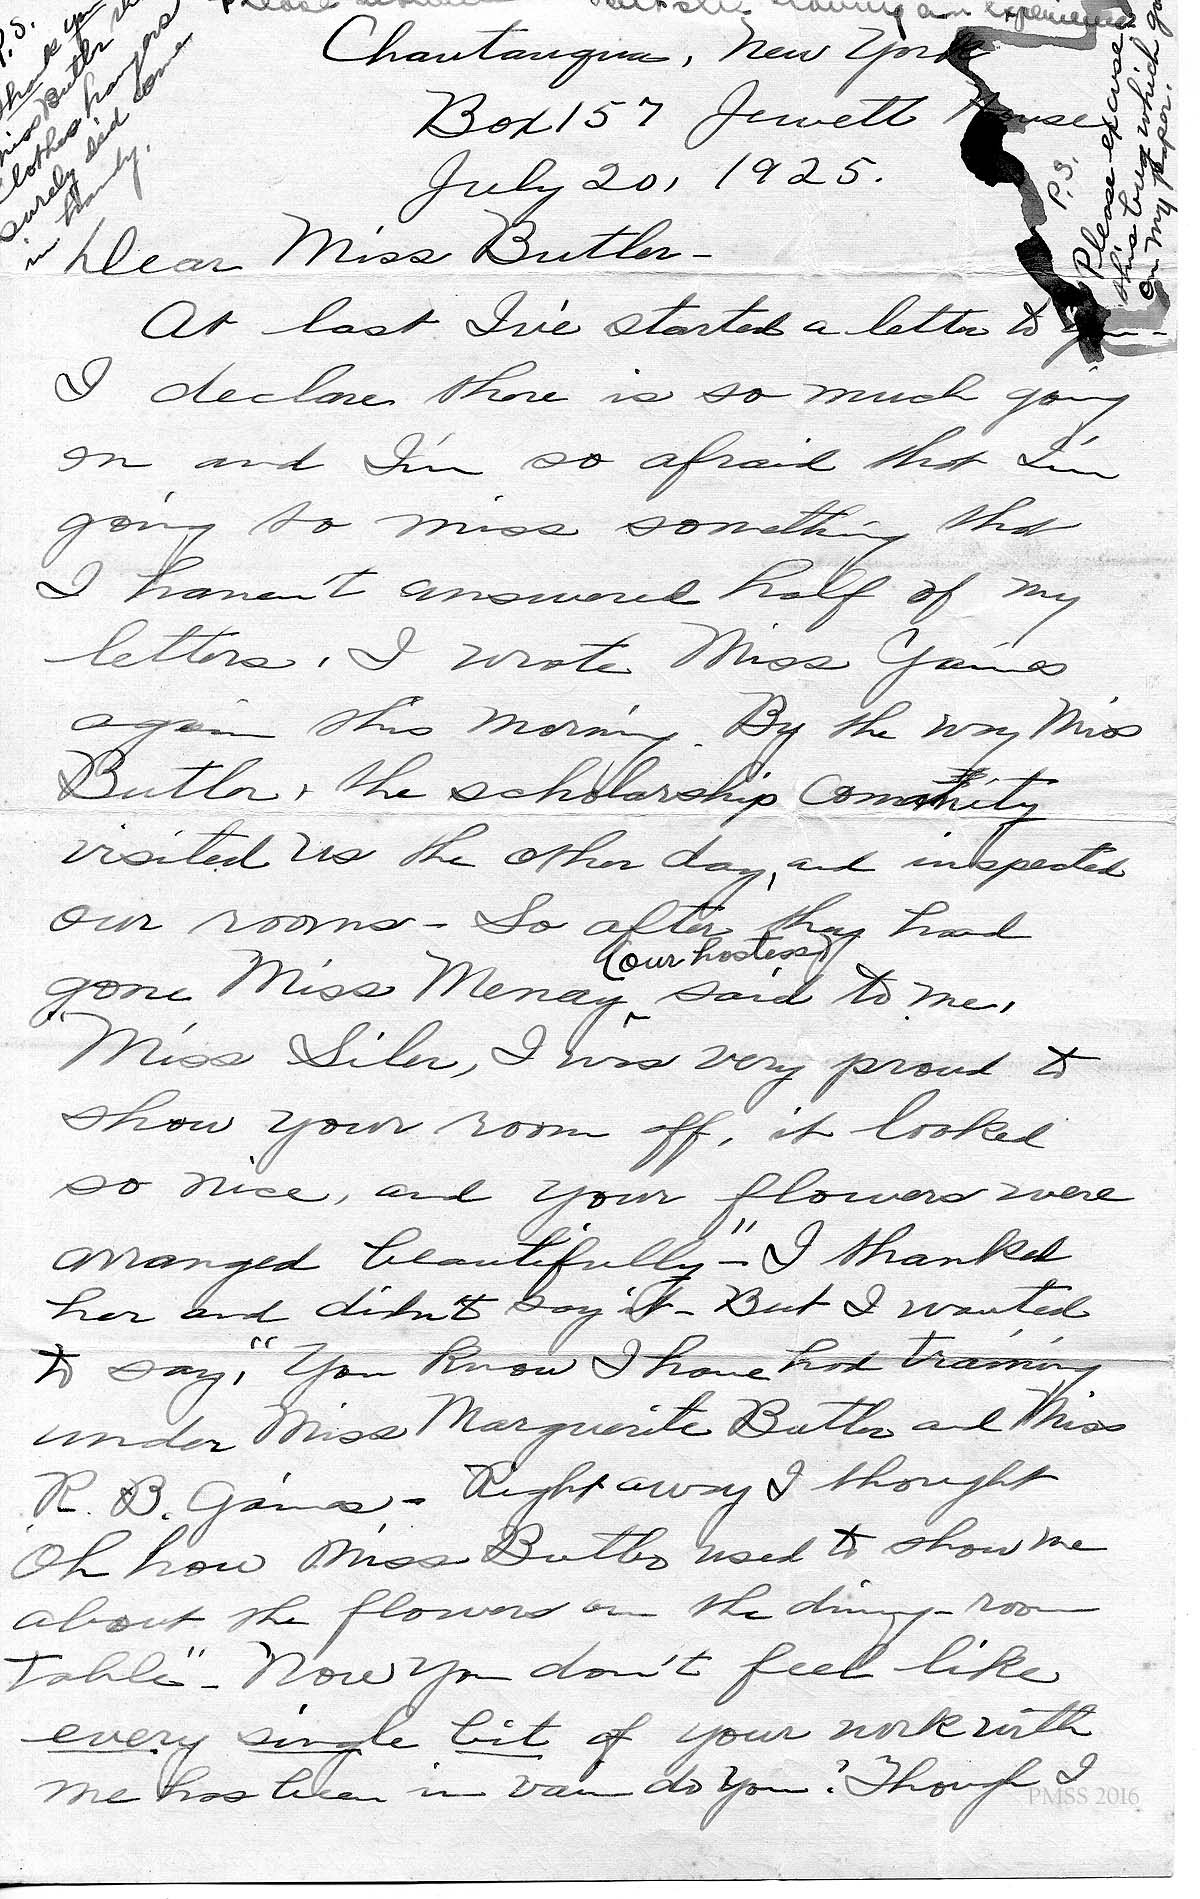 P.S.
Thank you
Miss Butler
Clothes hangers
surely did come
in handy.
Please
having an experience
Chautauqua, New York
Box 157 Jewett House
July 20, 1925.
P.S.
Please excuse
this bug which got
on my paper.
Dear Miss Butler-
At last I've started a letter to you-
I declare there is so much going
on and I'm so afraid that I'm
going to miss something that
I haven't answered half of my
letters. I wrote Miss Gaines
again this morning. By the way Miss
Butler, the scholarship
visited us the other day, and inspected
our rooms - So after they had
gone Miss Menay (our hostess) said to me,
"Miss Siler, I was very proud to
show your room off, it looked
so nice, and your flowers were
arranged beautifully"- I thanked
her and didn't say it - But I wanted
to say, "You know I have had training
under Miss Marguerite Butler and Miss
R. B. Gaines - Right away I thought
Oh how Miss Butler used to show me
about the flowers on the dining-room
table" - Now you don't feel like
every single bit of your work with
me has been in vain do you? Though I
PMSS 2016